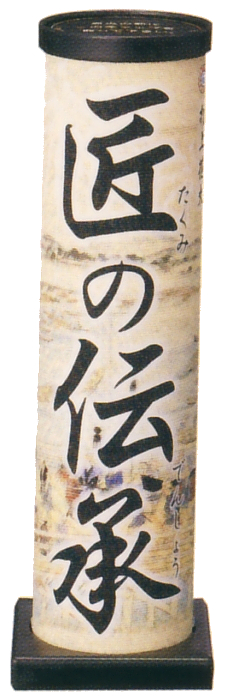 匠の伝承
たくみ
でんしょう